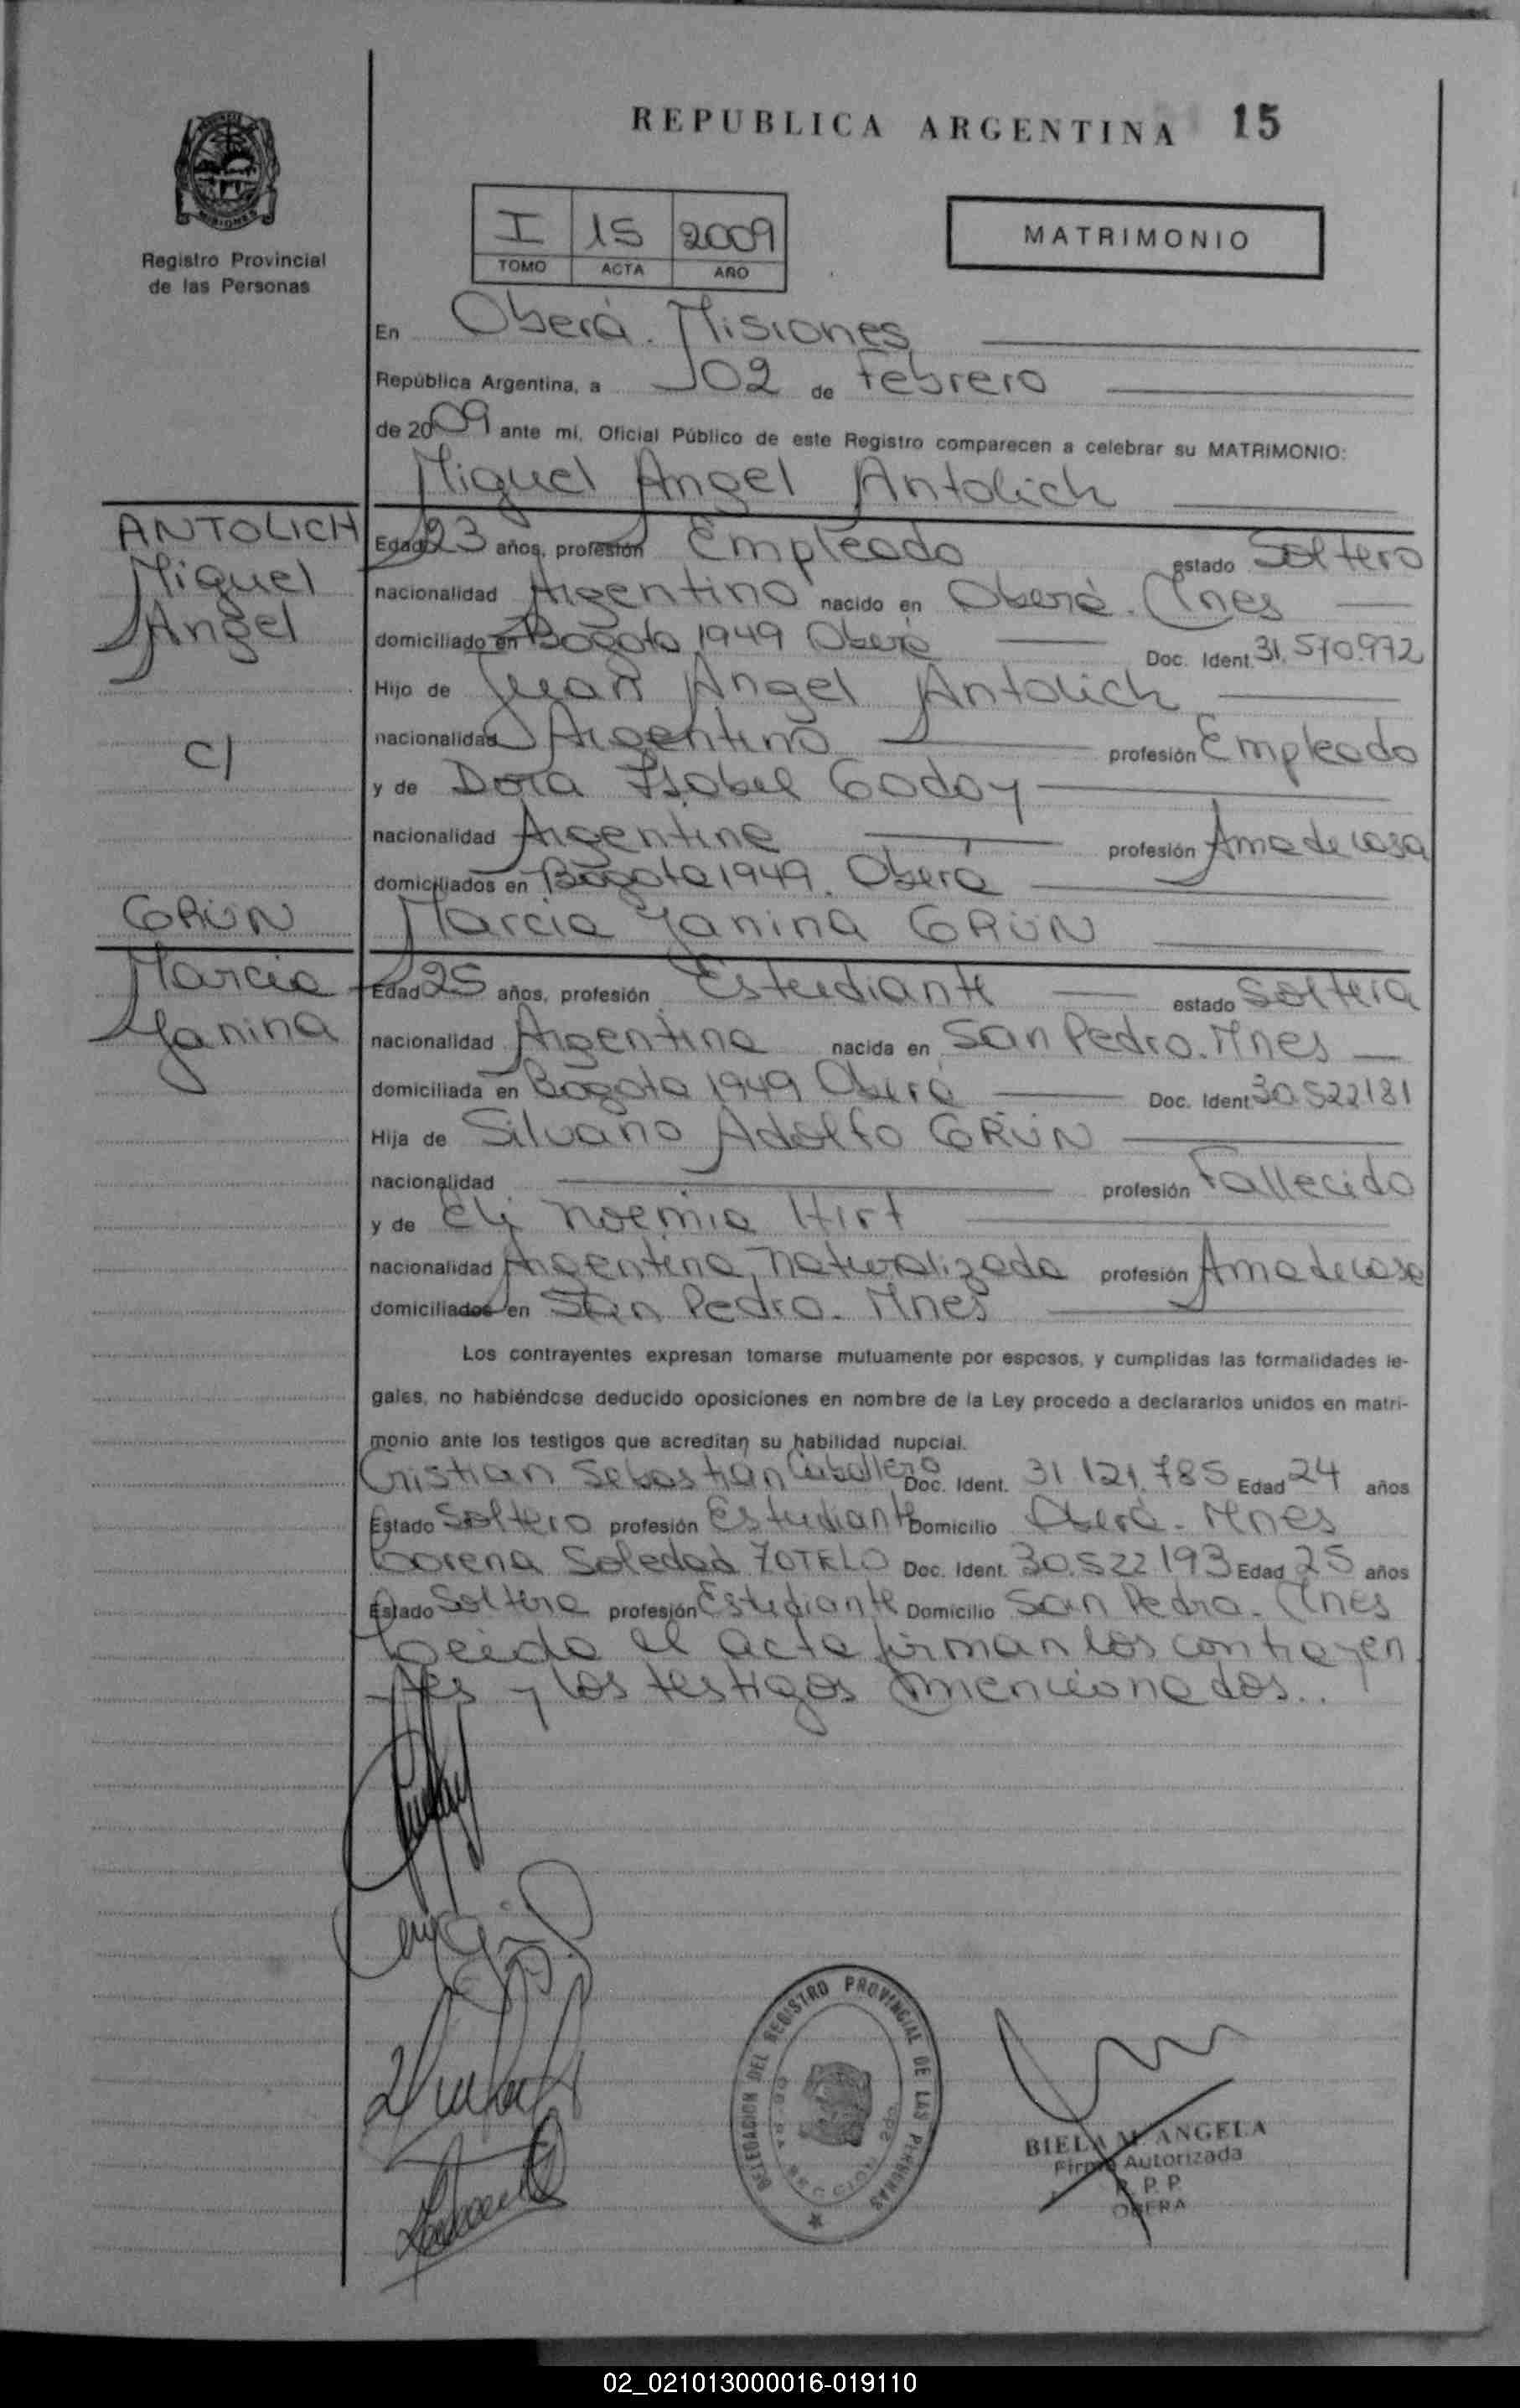 REPUBLICA ARGENTINA 15
MISIONES
Registro Provincial
de las Personas
I 15 2009
TOMO ACTA AÑO
MATRIMONIO
En Oberá. Misiones
República Argentina, a 02 de Febrero
de 2009 ante mí, Oficial Público de este Registro comparecen a celebrar su MATRIMONIO:
Miguel Angel Antolich
ANTOLICH
Miguel
Angel
c/
GRÜN
Marcia
Yanina
Edad 23 años, profesión Empleado estado Soltero
nacionalidad Argentino nacido en Oberá. Mnes
domiciliado en Bogota 1949 Oberá Doc. Ident. 31.570.972
Hijo de Juan Angel Antolich
nacionalidad Argentino profesión Empleado
y de Dora Isabel Godoy
nacionalidad Argentina profesión Ama de casa
domiciliados en Bogota 1949. Oberá
Marcia Yanina GRÜN
Edad 25 años, profesión Estudiante estado Soltera
nacionalidad Argentina nacida en San Pedro. Mnes
domiciliada en Bogota 1949 Oberá Doc. Ident. 30.522181
Hija de Silvano Adolfo GRÜN
nacionalidad profesión Fallecido
y de Eli Noemia Hirt
nacionalidad Argentina, naturalizada profesión Ama de casa
domiciliados en San Pedro. Mnes
Los contrayentes expresan tomarse mutuamente por esposos, y cumplidas las formalidades le-
gales, no habiéndose deducido oposiciones en nombre de la Ley procedo a declararlos unidos en matri-
monio ante los testigos que acreditan su habilidad nupcial.
Cristian Sebastián Caballero Doc. Ident. 31.121.785 Edad 24 años
Estado Soltero profesión Estudiante Domicilio Oberá - Mnes
Lorena Soledad ZOTELO Doc. Ident. 30.522193 Edad 25 años
Estado Soltera profesión Estudiante Domicilio San Pedro. Mnes
Leida el acta firman los contrayen
tes y los testigos mencionados..
DELEGACION DEL REGISTRO PROVINCIAL DE LAS PERSONAS
SECCION 2da
BIELA M. ANGELA
Firma Autorizada
R. P. P.
OBERA
02_021013000016-019110